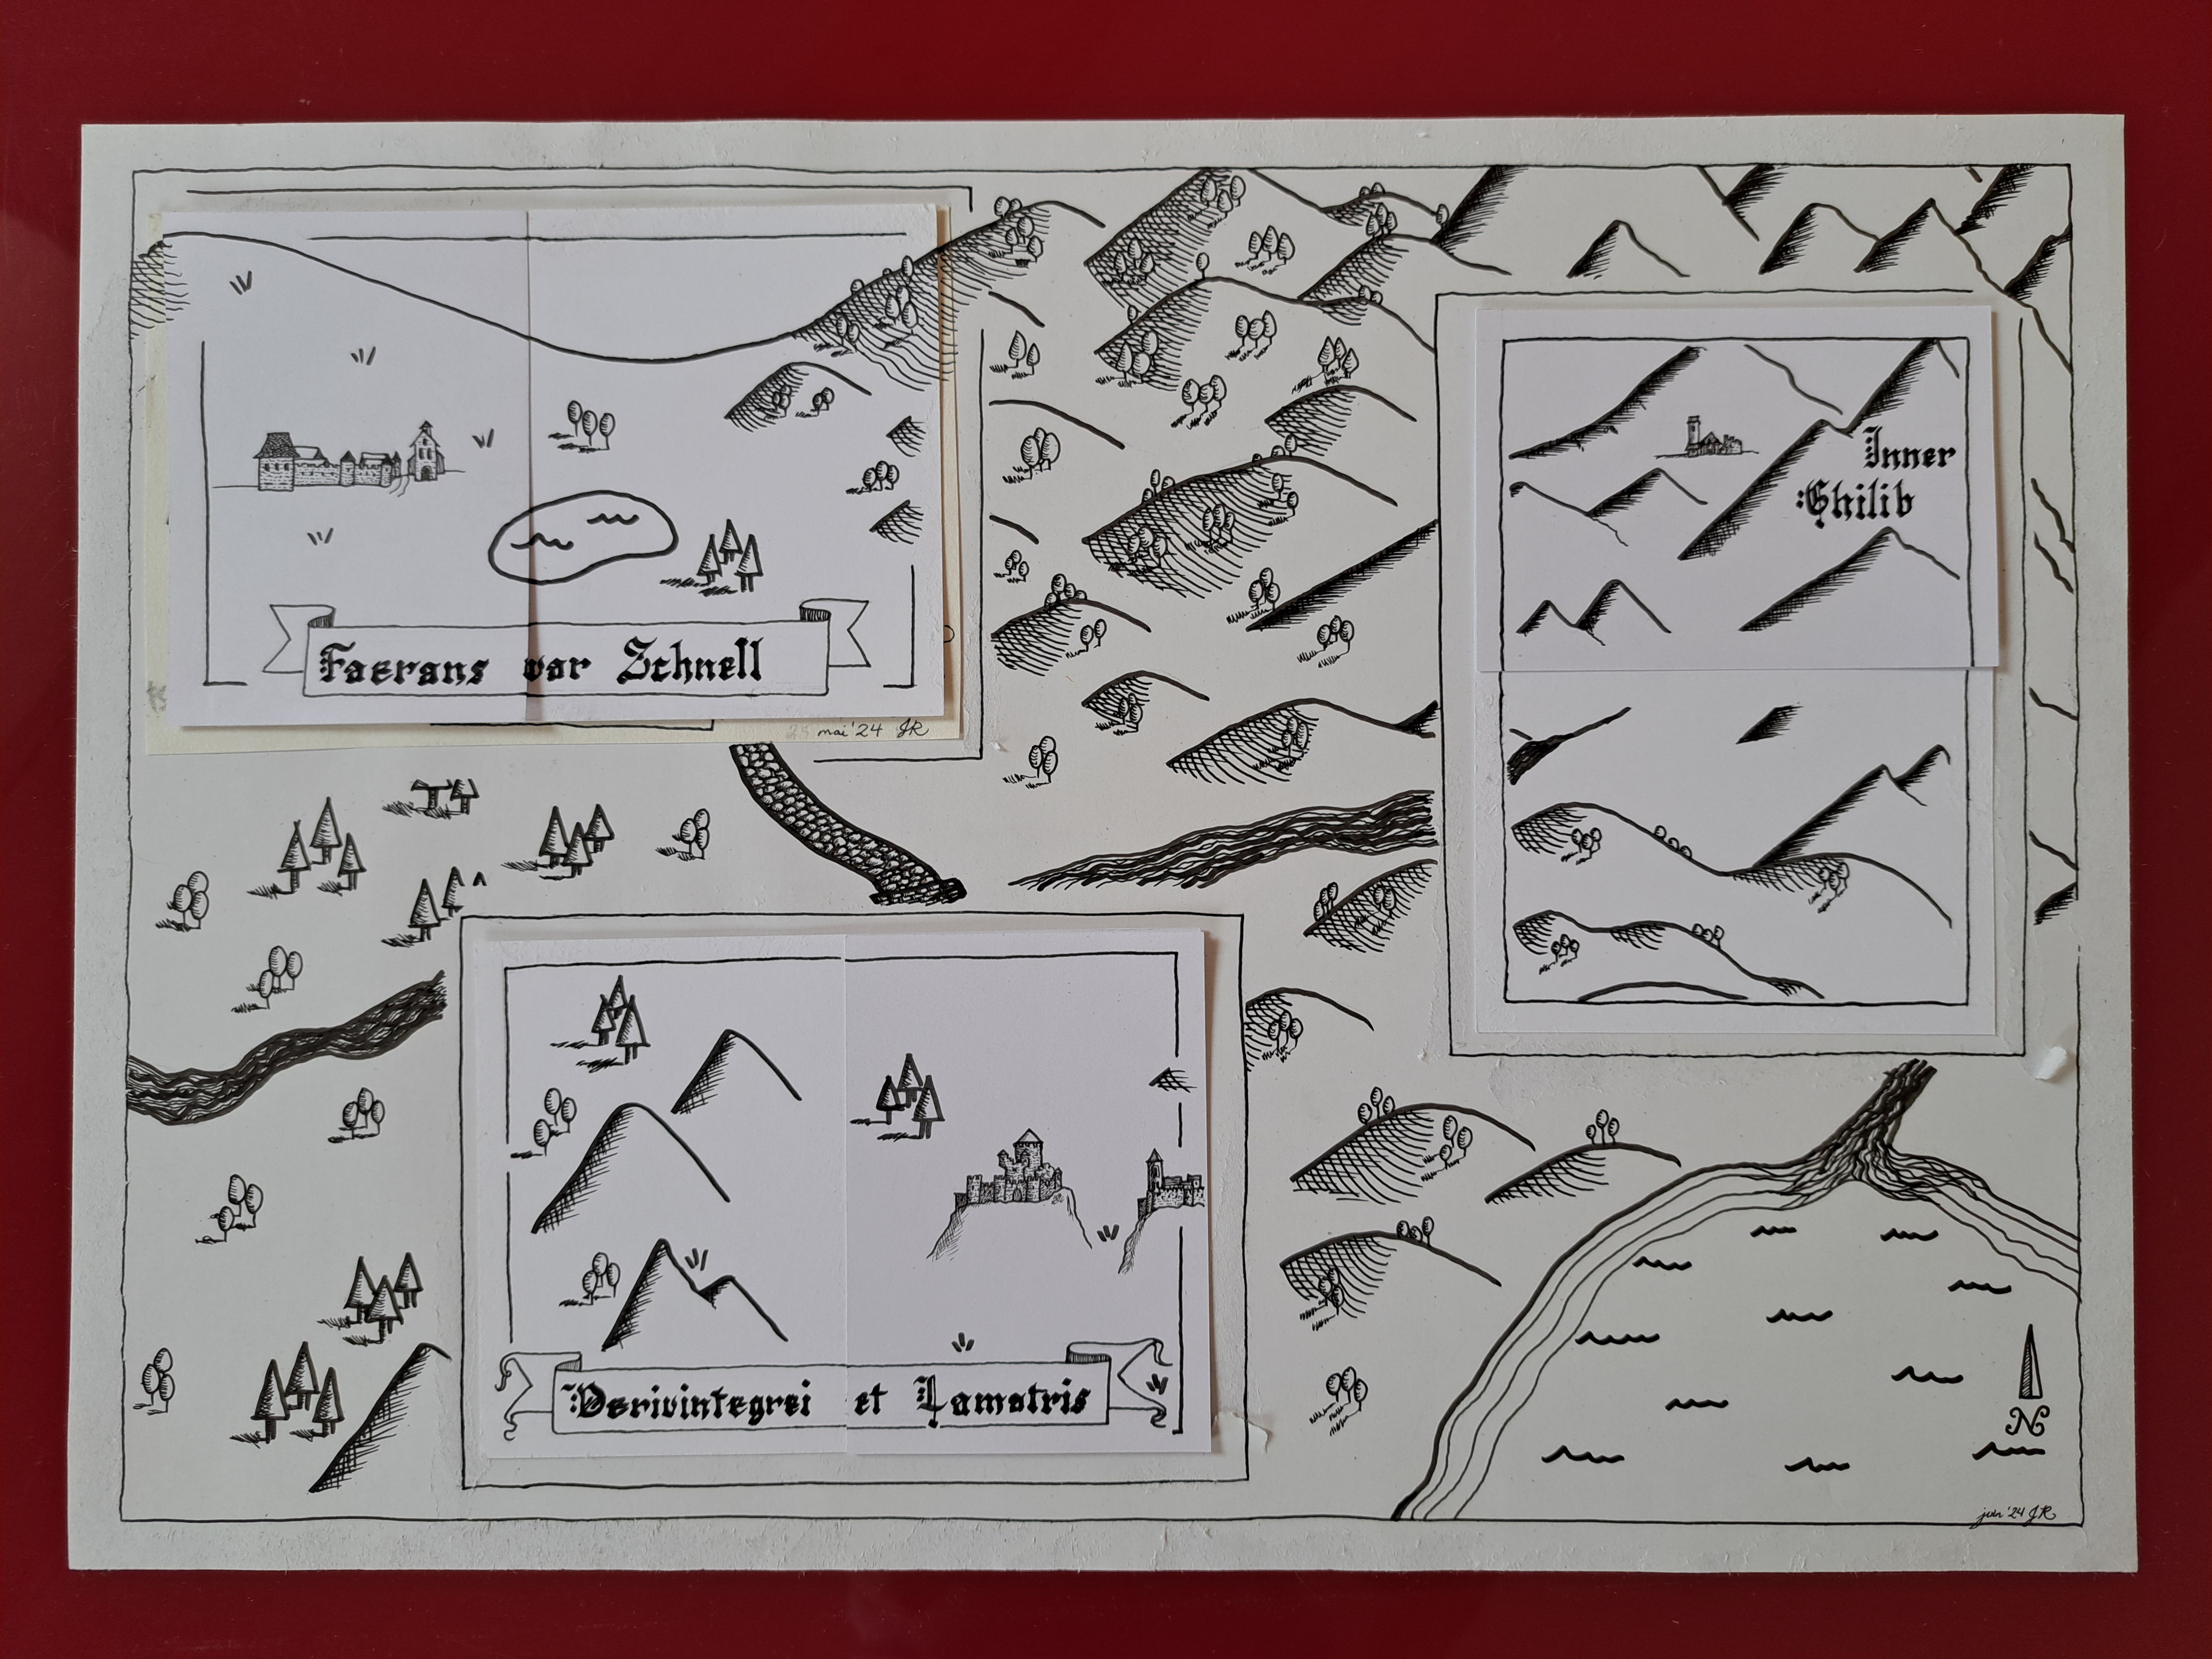 Faerans var Schnell
mai '24 JR
Inner
Ghilib
Derivintegrei et Lamatris
N
juin '24 JR